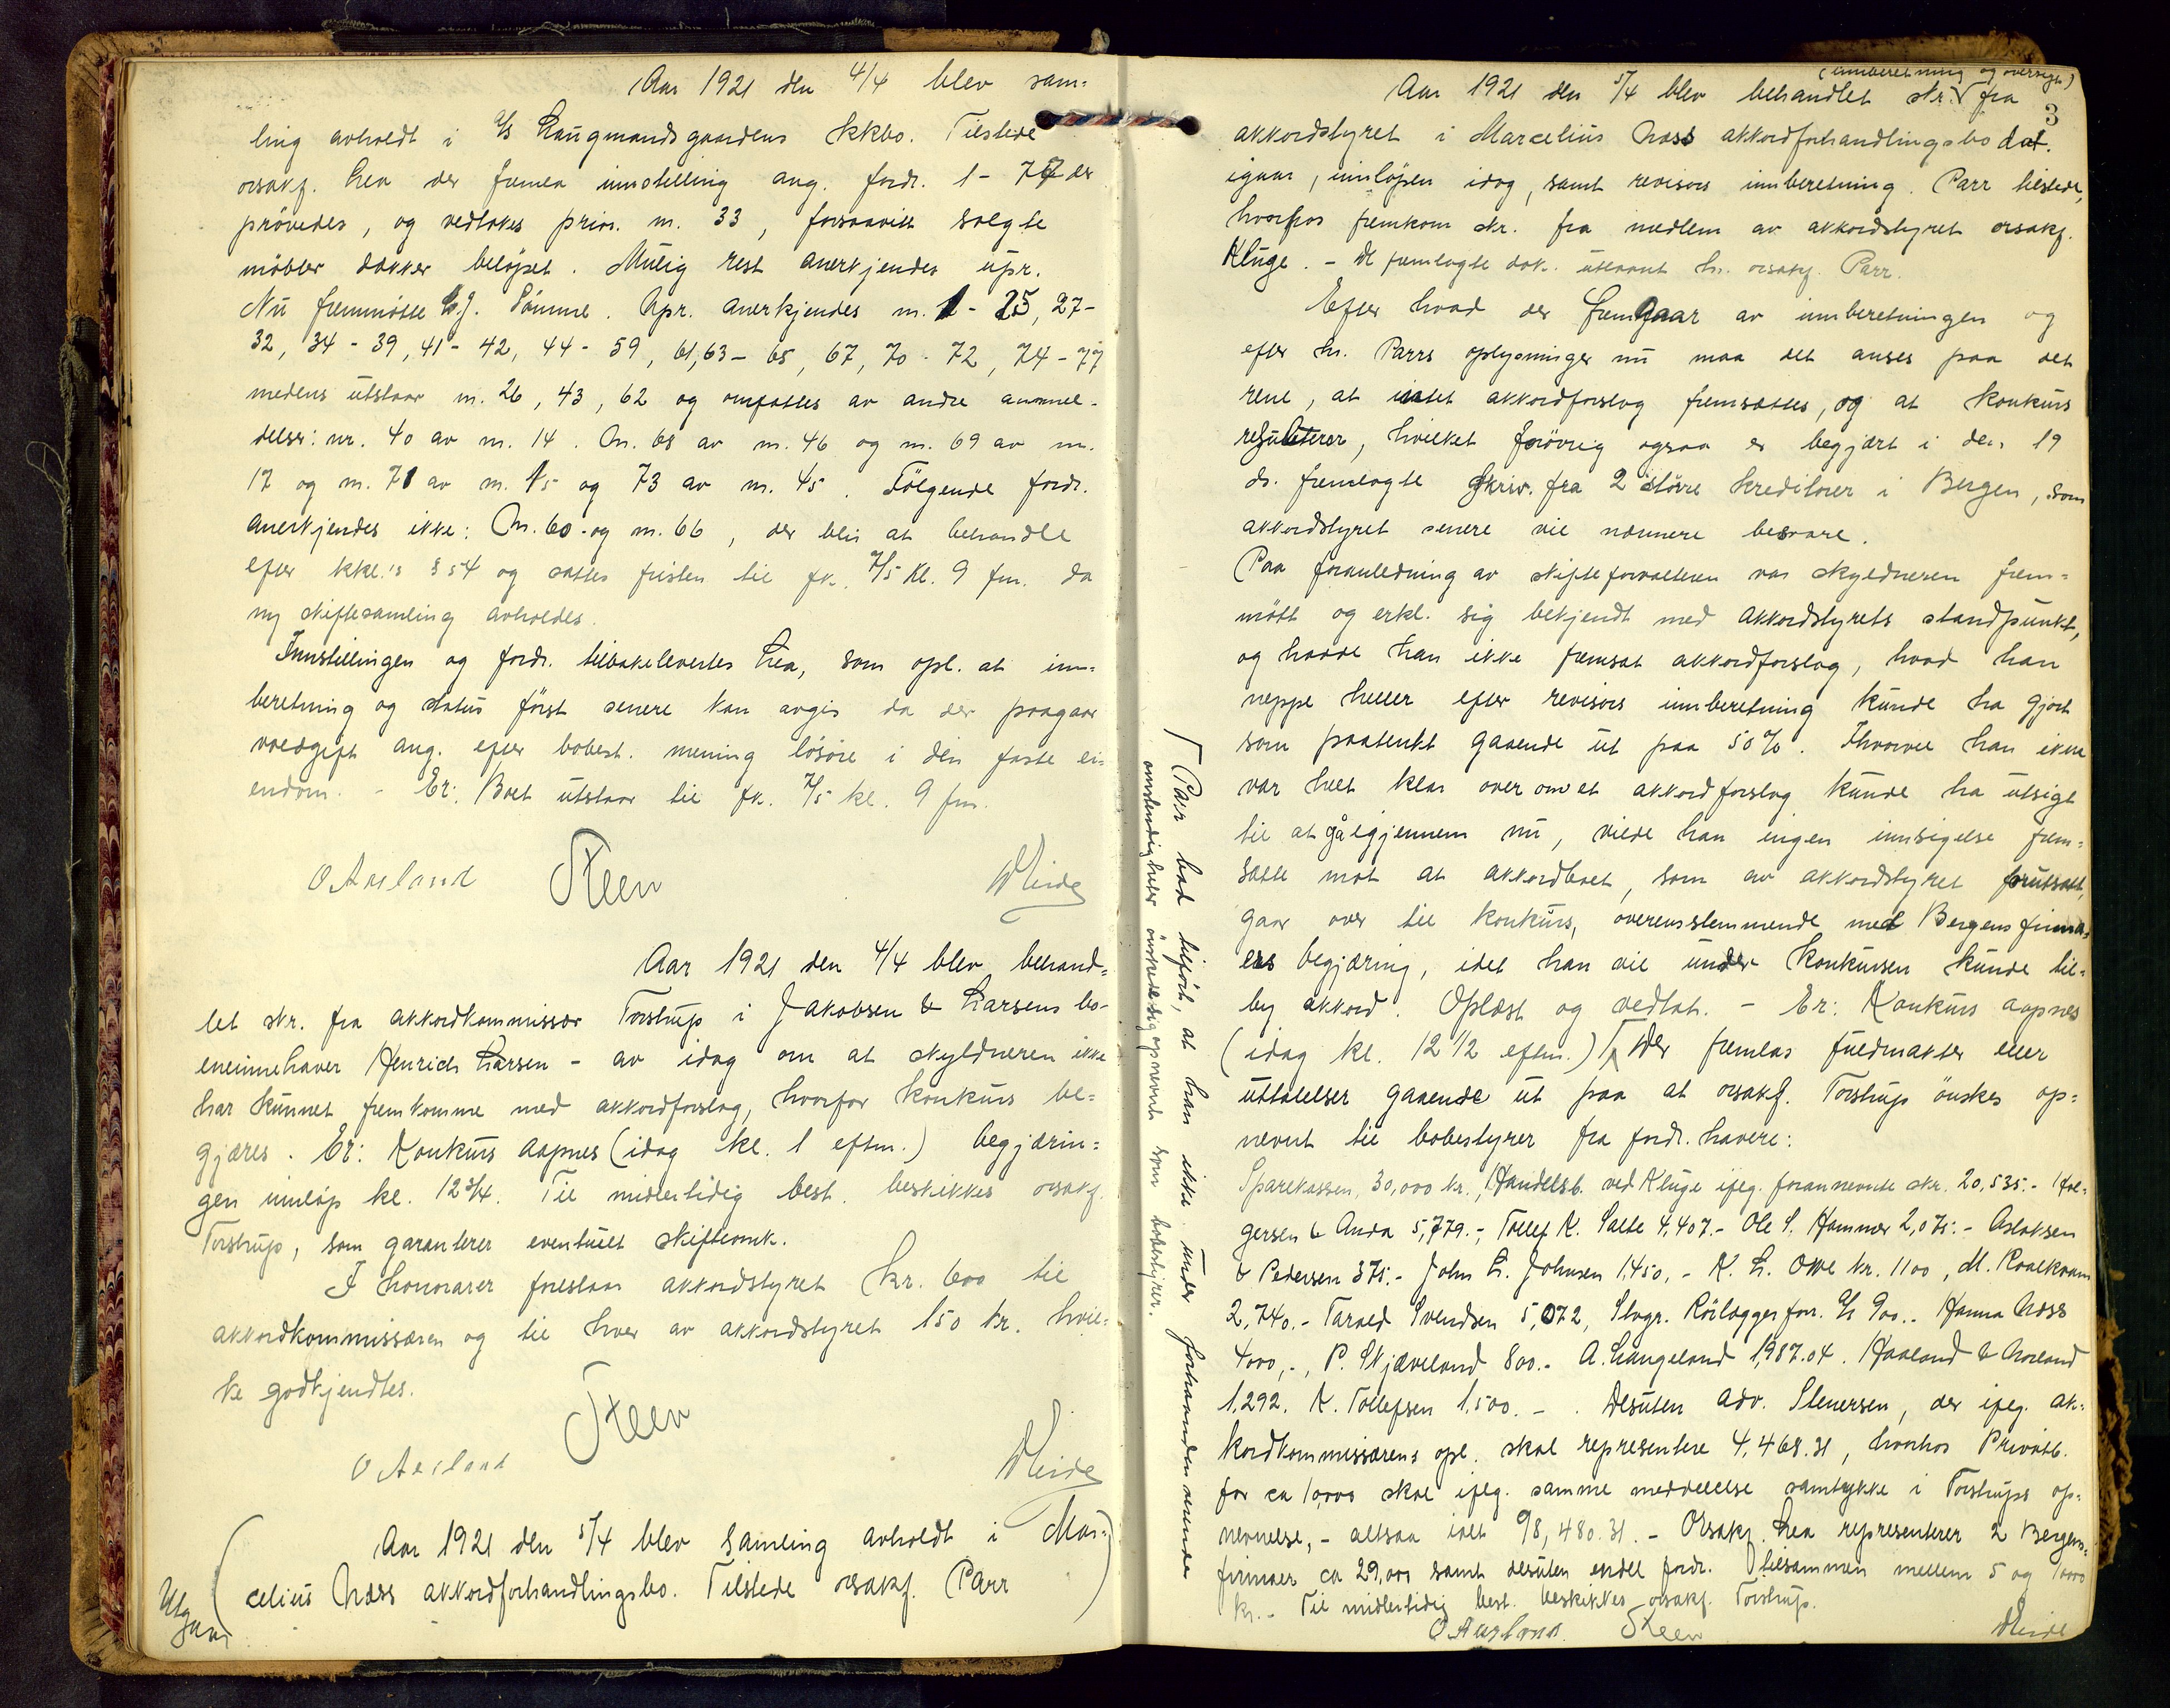 Aar 1921 den 4/4 blev sam-
ling avholdt i A/S Laugmandsgaardens kkbo. Tilstede
orsakf. Lea der fremla innstilling ang. fordr. 1 - 77 der
prøvedes, og vedtokes prior. nr. 33, forsaavitt solgte
møbler dækker beløpet. Mulig rest anerkjendes upr.
Nu fremmøtte C.J. Sømme. Upr. anerkjendes nr. 1 - 25, 27-
32, 34 - 39, 41 - 42, 44 - 59, 61, 63 - 65, 67, 70 - 72, 74 - 77
medens utstaar nr. 26, 43, 62 og omfattes av andre anmel-
delser: nr. 40 av nr. 14. Nr. 68 av nr. 46 og nr. 69 av nr.
17 og nr. 71 av nr. 15 og 73 av nr. 45. Følgende fordr.
anerkjendes ikke: Nr. 60 og nr. 66, der blir at behandle
efter kkl.'s § 54 og sattes fristen til fk. 7/5 kl. 9 fm. da
ny skiftesamling avholdes.
Innstillingen og fordr. tilbakelevertes Lea, som opl. at inn-
beretning og status først senere kan avgis da der paagaar
voldgift ang. efter bobest. mening løsøre i den faste ei-
endom. - Er: Boet utstaar til fk. 7/5 kl. 9 fm.
O Aasland Steen
Aar 1921 den 4/4 blev behand-
let skr. fra akkordkommissær Torstrup i Jakobsen & Larsens bo-
eneinnehaver Henrich Larsen - av idag om at skyldneren ikke
har kunnet fremkomme med akkordforslag, hvorfor konkurs be-
gjæres. Er: Konkurs aapnes (idag kl. 1 eftm.) begjærin-
gen innløp kl. 12 3/4. Til midlertidig best. beskikkes orsakf.
Torstrup, som garanterer eventuelt skifteomk.
I honorarer foreslaar akkordstyret kr. 600 til
akkordkommissæren og til hver av akkordstyret 150 kr. hvil-
ke godkjendtes.
O Aasland Steen
Aar 1921 den 5/4 blev samling avholdt i Mar-
celius Næss akkordforhandlingsbo. Tilstede orsakf. Parr
Utgaar
(innberetning og oversigt)
3
Aar 1921 den 5/4 blev behandlet skr. fra
akkordstyret i Marcelius Næss akkordforhandlingsbo dat.
igaar, innløpen idag, samt revisors innberetning. Parr tilstede,
hvorhos fremkom skr. fra medlem av akkordstyret orsakf.
Kluge. - De fremlagte dok. utlaant hr. orsakf. Parr.
Efter hvad der fremgaar av innberetningen og
efter hr. Parrs oplysninger nu maa det anses paa det
rene, at intet akkordforslag fremsættes, og at konkurs
resulterer, hvilket forøvrig ogsaa er begjært i den 19
ds. fremlagte skriv. fra 2 større kreditorer i Bergen, som
akkordstyret senere vil nærmere besvare.
Paa foranledning av skifteforvalteren var skyldneren frem-
møtt og erkl. sig bekjendt med akkordstyrets standpunkt,
og hadde han ikke fremsat akkordforslag, hvad han
neppe heller efter revisors innberetning kunde ha gjort
som paatenkt gaaende ut paa 50%. Ihvorvel han ikke
var helt klar over om et akkordforslag kunde ha utsigt
til at gå igjennem nu, vilde han ingen innsigelse frem-
sætte mot at akkordboet, som av akkordstyret forutsatt,
gaar over til konkurs, overensstemmende med Bergensfirma-
ers begjæring, idet han vil under konkursen kunde til-
by akkord. Oplæst og vedtat. - Er: Konkurs aapnes
(idag kl. 12 1/2 eftm.) Γ Der fremlas fuldmakter eller
uttalelser gaaende ut paa at orsakf. Torstrup ønskes op-
nevnt til bobestyrer fra fordr. havere:
Sparekassen, 30,000 kr., Handelsb. ved Kluge ifølg. forannevnte skr. 20,535.- Hol-
gersen & Anda 5,779.-, Tollef K. Salte 4,407.- Ole S. Hammer 2,075.- Aslaksen
& Pedersen 375.- John L. Johnsen 1,450.- K. L. Owe kr. 1100, M. Roalkvam
2,740.- Tarald Svendsen 5,072, Stvgr. Rørlæggerforr. A/S 900.- Hanna Næss
4000,-, P. Skjæveland 800.- A. Langeland 1,987.04. Haaland & Norland
1,292. K. Tollefsen 1,500.- . Desuten adv. Stenersen, der ifølg. ak-
kordkommissærens opl. skal representere 4,468.31, hvorhos Privatb.
for ca 10,000 skal ifølg. samme meddelelse samtykke i Torstrups op-
nevnelse, - altsaa ialt 98,480.31. - Orsakf. Lea representerer 2 Bergens-
firmaer ca 29,000 samt desuten endel fordr. tilsammen mellem 5 og 10000
kr. - Til midlertidig best. beskikkes orsakf. Torstrup.
O Aasland. Steen
Γ Parr bad tilført, at han ikke under forhaandenværende
omstendigheter ønsket sig opnevnt som bobestyrer.